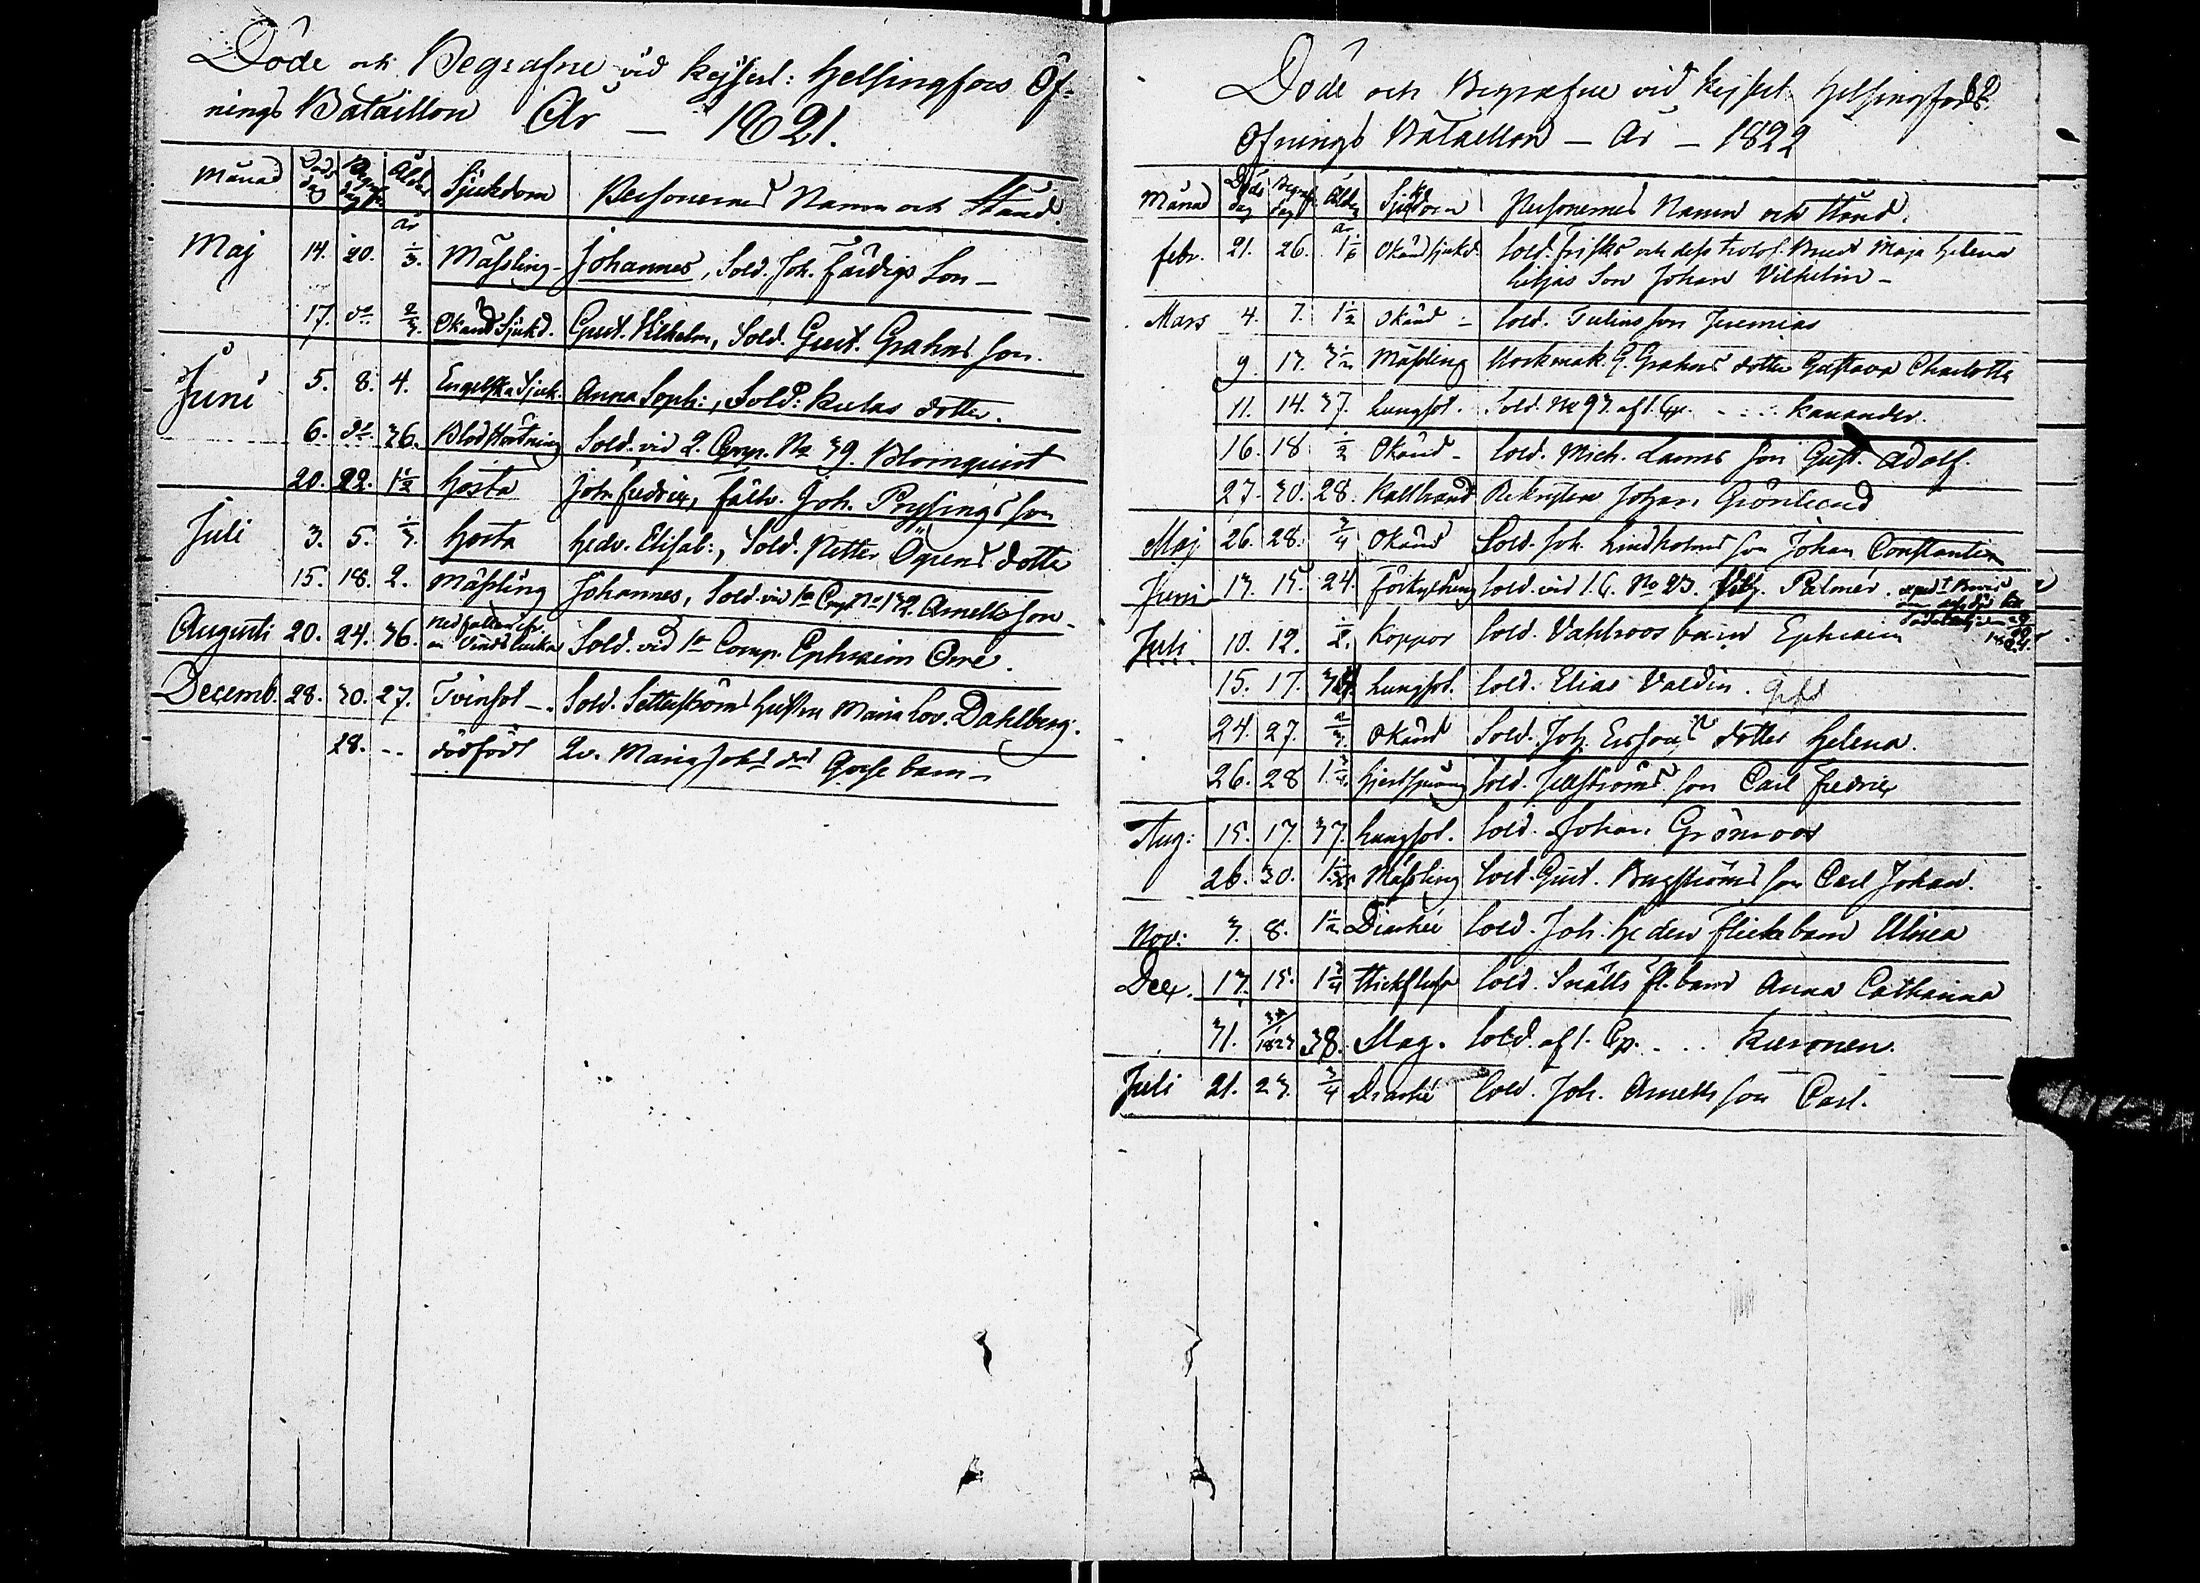 Döde och Begrafne vid Kejserl: Helsingfors Öf-
nings Bataillon År — 1821.
Månad Döds dag Begr: dag Ålder Sjukdom Personernes Namn och Stånd.
år
Maj 14. 20. 1/3. Mässling- Johannes, Sold. Joh. Färdigs Son —
17. do 2/3. Okänd Sjukd. Gust. Vilhelm, Sold. Gust. Grahns son.
Juni 5. 8. 4. Engelska Sjuk. Anna Soph:, Sold: Kulas dotter.
6. do 36. Blodstörtning Sold. vid 2. Comp. No 39. Blomquist
20. 22. 1 1/2 Hosta Joh. Fredric, Fältv. Joh. Prysings son
Juli 3. 5. 1/3. Hosta Hedv. Elisab:, Sold. Petter Ögrens dotter
15. 18. 2. Mässling Johannes, Sold. vid 1a Comp. No 132. Arnells son —
Augusti 20. 24. 36. nedfallen ifr. en Vindslucka Sold. vid 1a Comp. Ephraim Orre.
Decemb. 28. 30. 27. Tvinsot —. Sold. Setterströms Hustru Maria Lov. Dahlberg.
28. -- dödfödt Qv. Maria Johsdrs Gosse barn —
Döde och Begrafne vid Kejserl. Helsingfors
Öfnings Bataillon — År — 1822
Månad Döds dag Begraf. dag Ålder Sjukdom Personernes Namn och Stånd.
år
Febr. 21. 26. 1/6 Okänd sjukd. Sold. Frisks och dess trolof. Brud Maja Helena
Liljas Son Johan Vilhelm —
Mars 4. 7. 1 1/2 Okänd — Sold. Tulins son Jeremias
9. 13. 3 1/2 Mässling Stockmak. G. Grahns dotter Gustava Charlotta
11. 14. 37. Lungsot. Sold. No 93. af 1. Cp. - - - Kanander.
16. 18 1/2 Okänd - Sold. Mich. Lanns son Gust. Adolf.
27. 30. 28. Kallbrand Rekryten Johan Grönlund
Maj 26. 28. 3/4 Okänd Sold. Joh. Lindholms son Johan Constantin
Juni 13. 15. 24. Förkylning Sold. vid 1. C. No 23. Palmér.
Juli 10. 12. 1/2. Koppor Sold. Vahlroos barn Ephraim
15. 17. Lungsot. Sold. Elias Valdin.
24. 27. 2/3. Okänd Sold. Joh. Ersons dotter Helena.
26. 28 1 3/4. Hjertsprång Sold. Fellströms son Carl Fredric
Aug: 15. 17. 37. Lungsot. Sold. Johan Grönroos
26. 30. Mässling Sold. Gust. Bergströms son Carl Johan.
Nov: 3. 8. 1 1/2 Diarhée Sold. Joh. Hedén Flickebarn Ulrica
Decr. 13. 15. 1 3/4 Stickfluss Sold. Snälls fl. barn Anna Catharina
31. 1823 38. Slag. Sold. af 1. Cp. - - - Kuronen.
Juli 21. 23. 3/4 Diarhé Sold. Joh. Arnells son Carl.